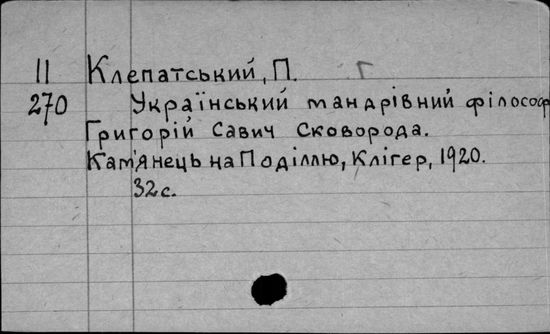 II Клепатський, П. Г
270 Український мандрівний філософ
Григорій Савич Сковорода.
Кам'янець на Поділлю, Клігер, 1920.
32с.